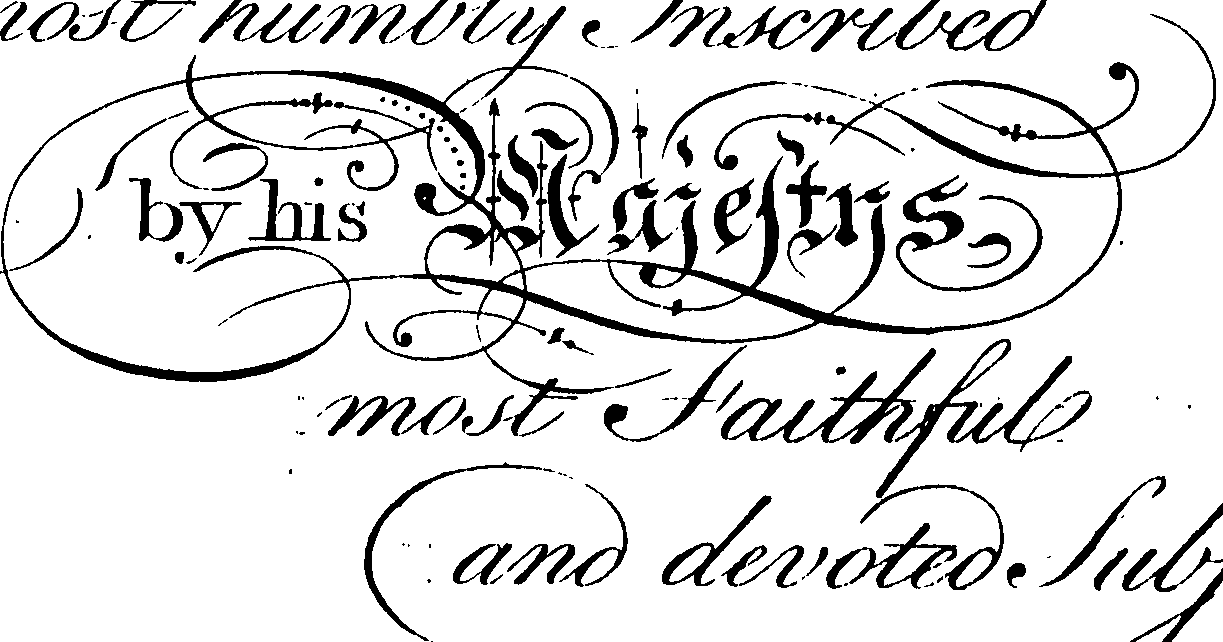 most humbly Inscribed
by his Majeſtys
most Faithful
and devoted Subj